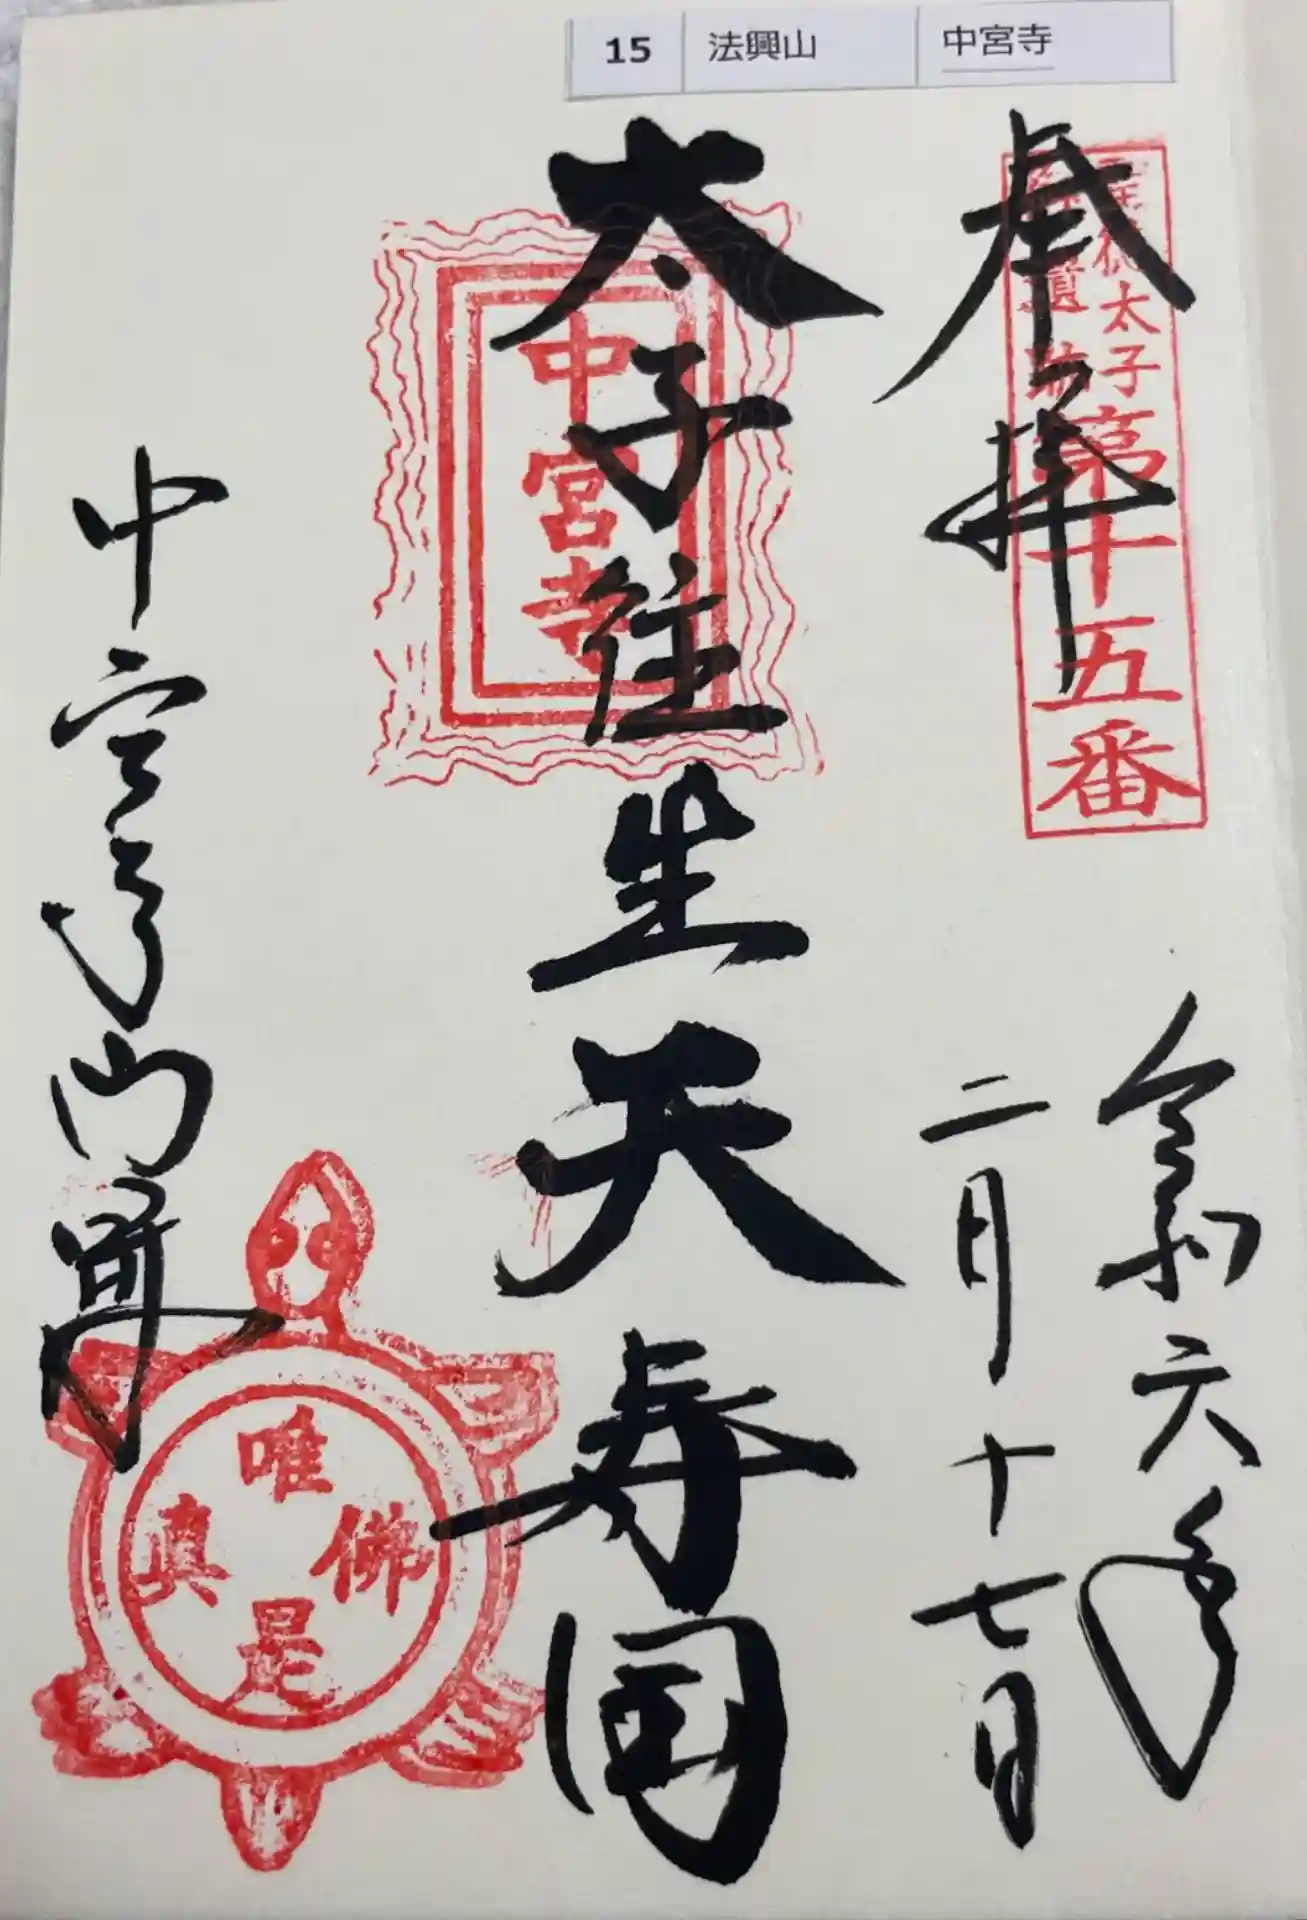 15 法興山 中宮寺
奉拝
聖徳太子
遺跡
第十五番
令和六年
二月十七日
太子往生天寿国
中宮寺
中宮寺門跡
唯佛是真